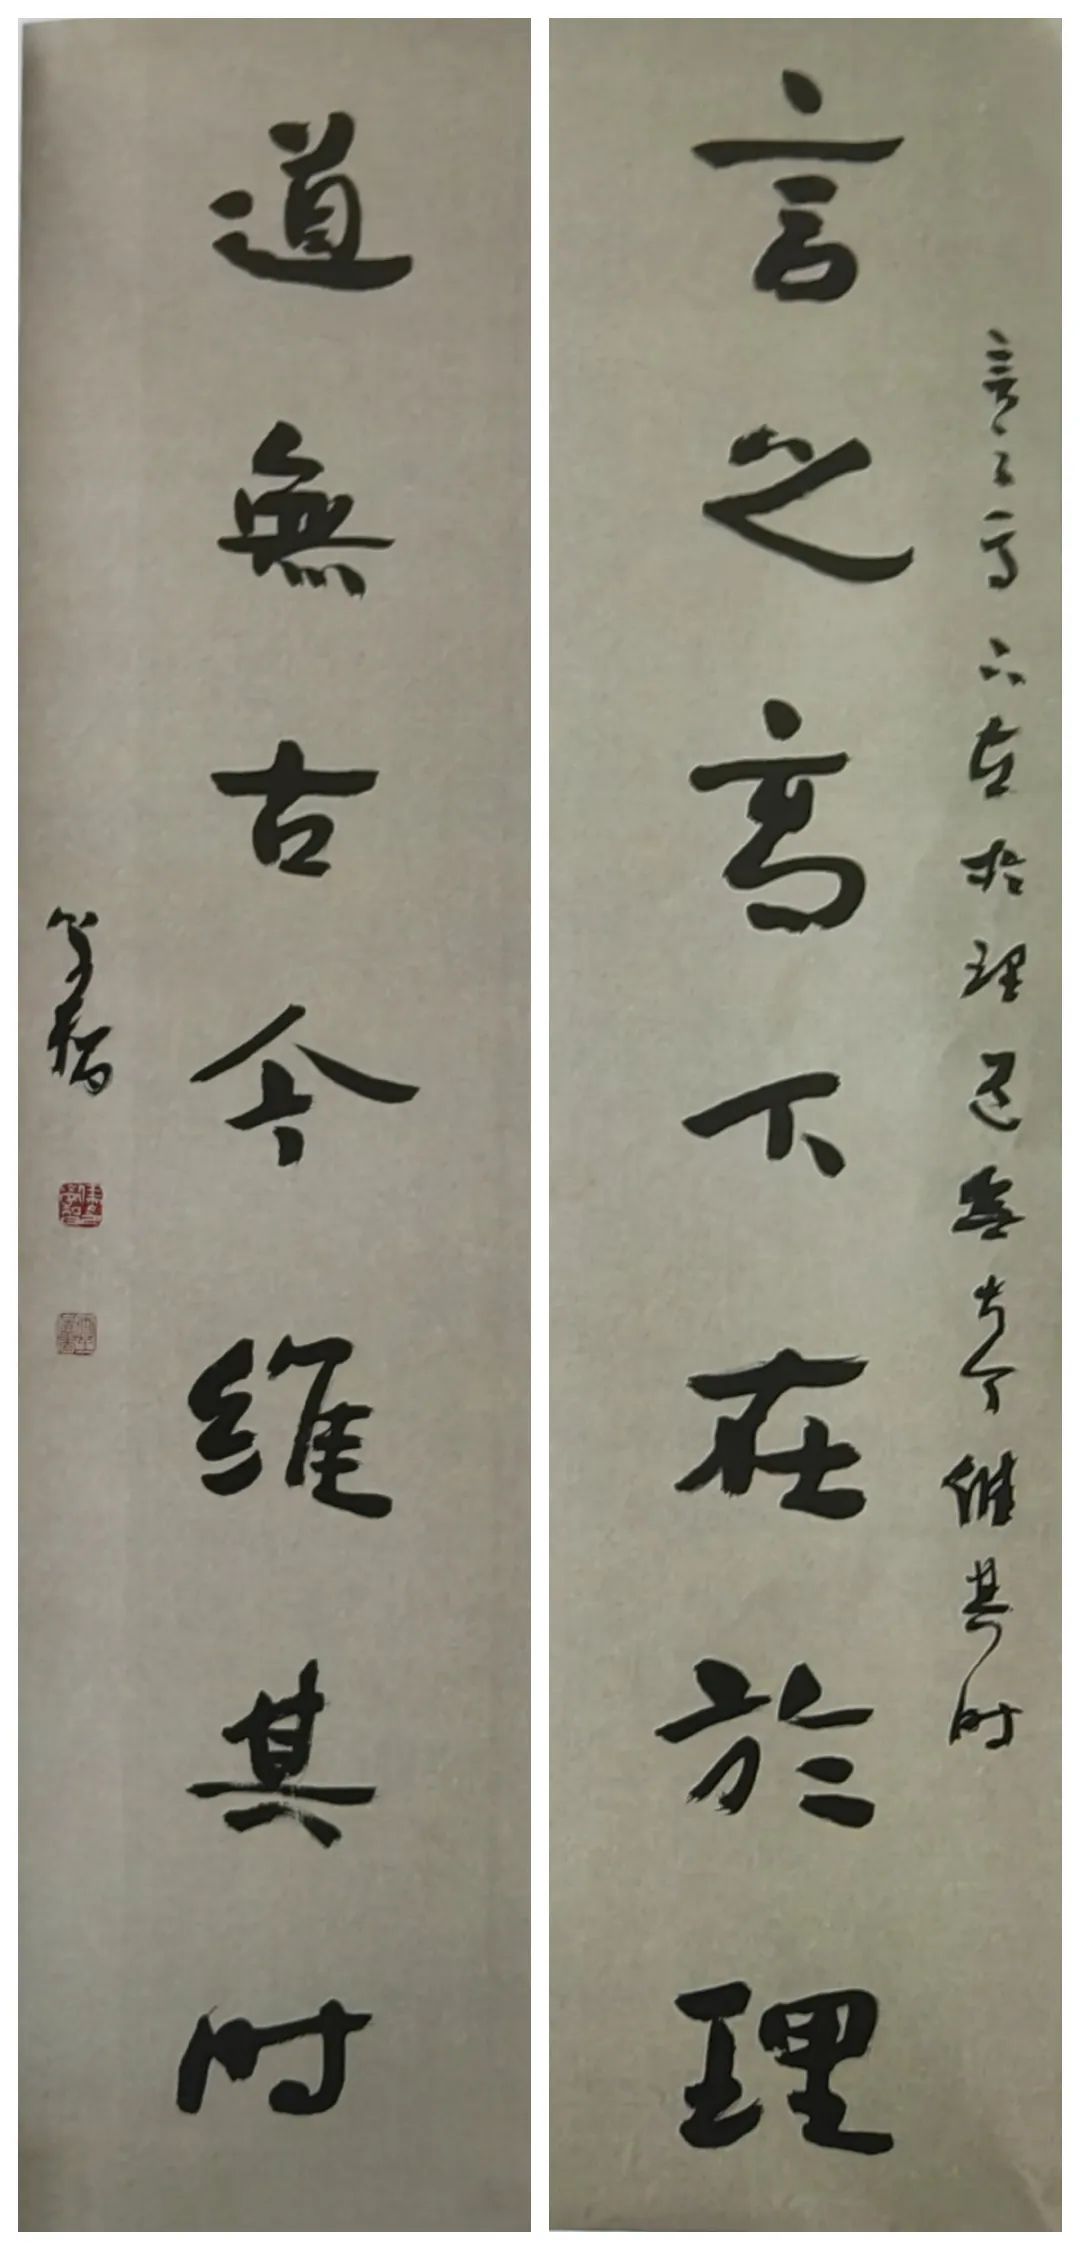 言之高下在於理
言之高下在於理道無古今維其時
道無古今維其時